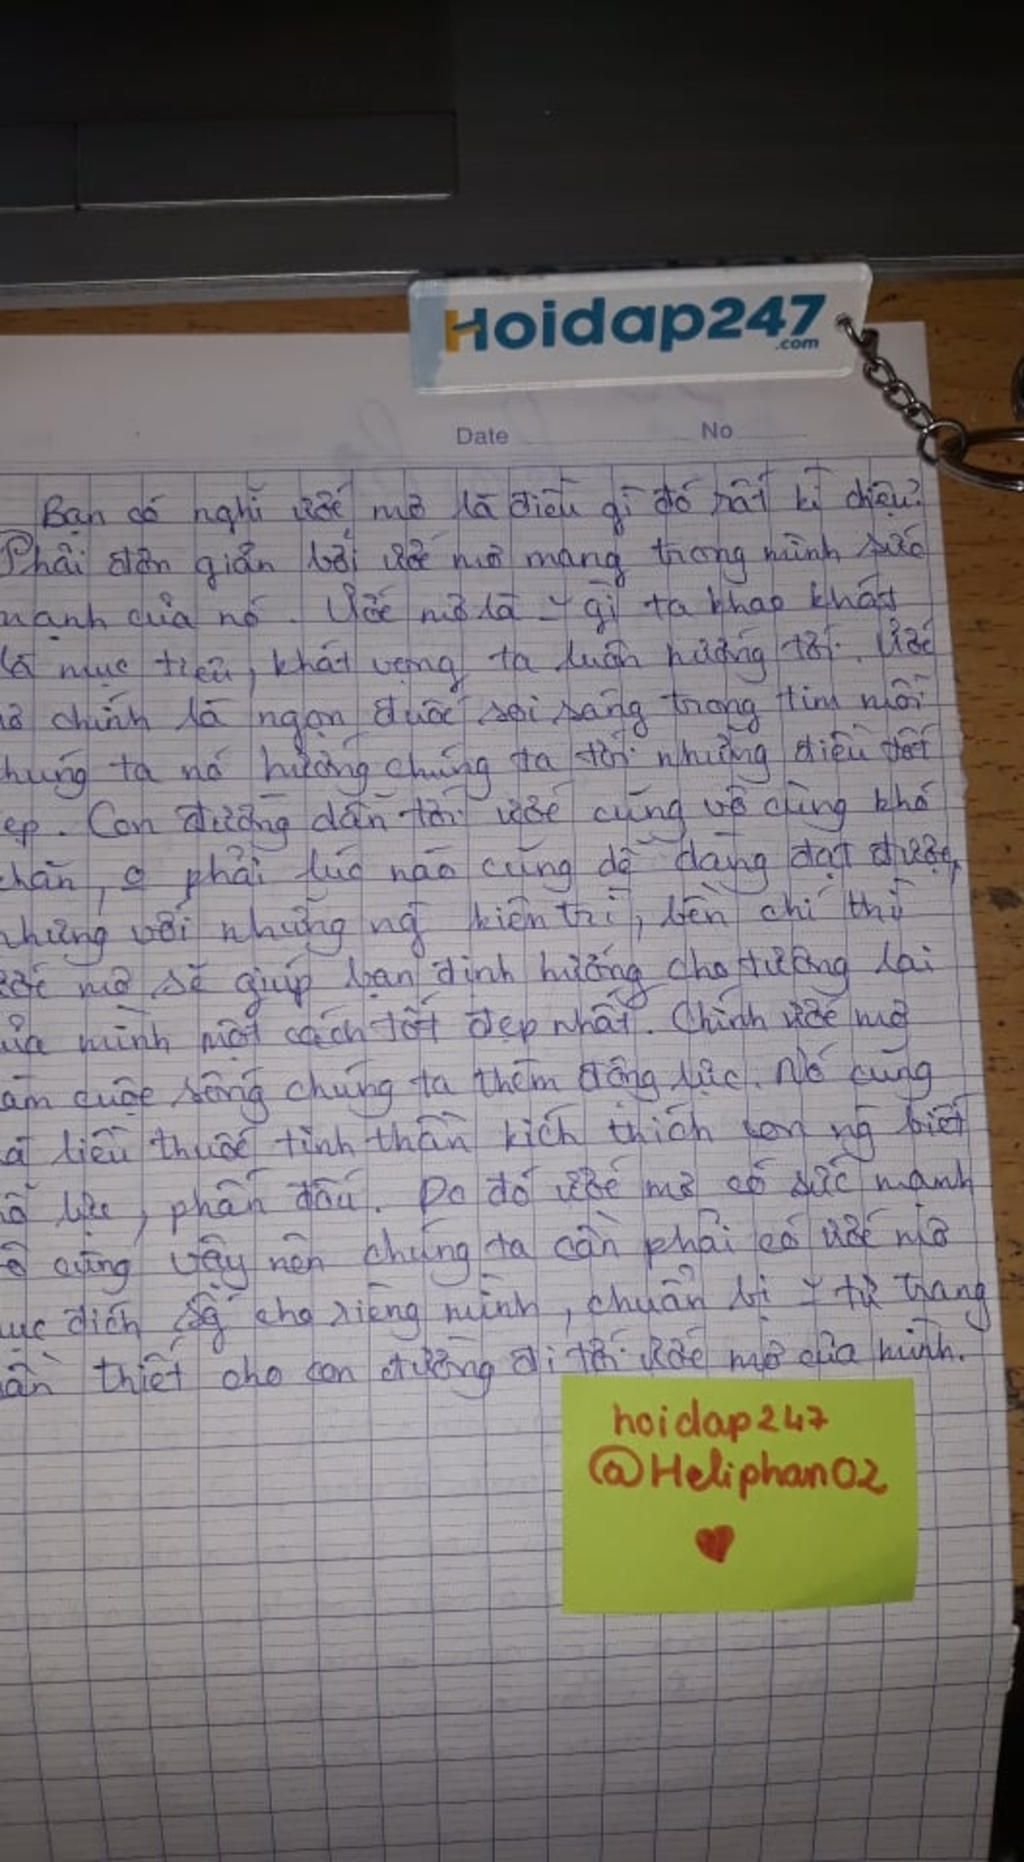 Hoidap247
.com
Date No
Bạn có nghĩ ước mơ là điều gì đó rất kì diệu?
Phải đơn giản bởi ước mơ mang trong mình sức
mạnh của nó. Ước mơ là ~ gì ta khao khát
là mục tiêu, khát vọng ta luôn hướng tới. Ước
mơ chính là ngọn đuốc soi sáng trong tim mỗi
chúng ta nó hướng chúng ta tới những điều tốt
đẹp. Con đường dẫn tới ước cũng vô cùng khó
khăn, o phải lúc nào cũng dễ dàng đạt được,
nhưng với những ng kiên trì, bền chí thì
ước mơ sẽ giúp bạn định hướng cho tương lai
của mình một cách tốt đẹp nhất. Chính ước mơ
làm cuộc sống chúng ta thêm động lực. Nó cũng
là liều thuốc tinh thần kích thích con ng biết
nỗ lực, phấn đấu. Do đó ước mơ có sức mạnh
vô cùng vậy nên chúng ta cần phải có ước mơ
mục đích sg cho riêng mình, chuẩn bị ~ tư trang
cần thiết cho con đường đi tới ước mơ của mình.
hoidap247
@Heliphan02